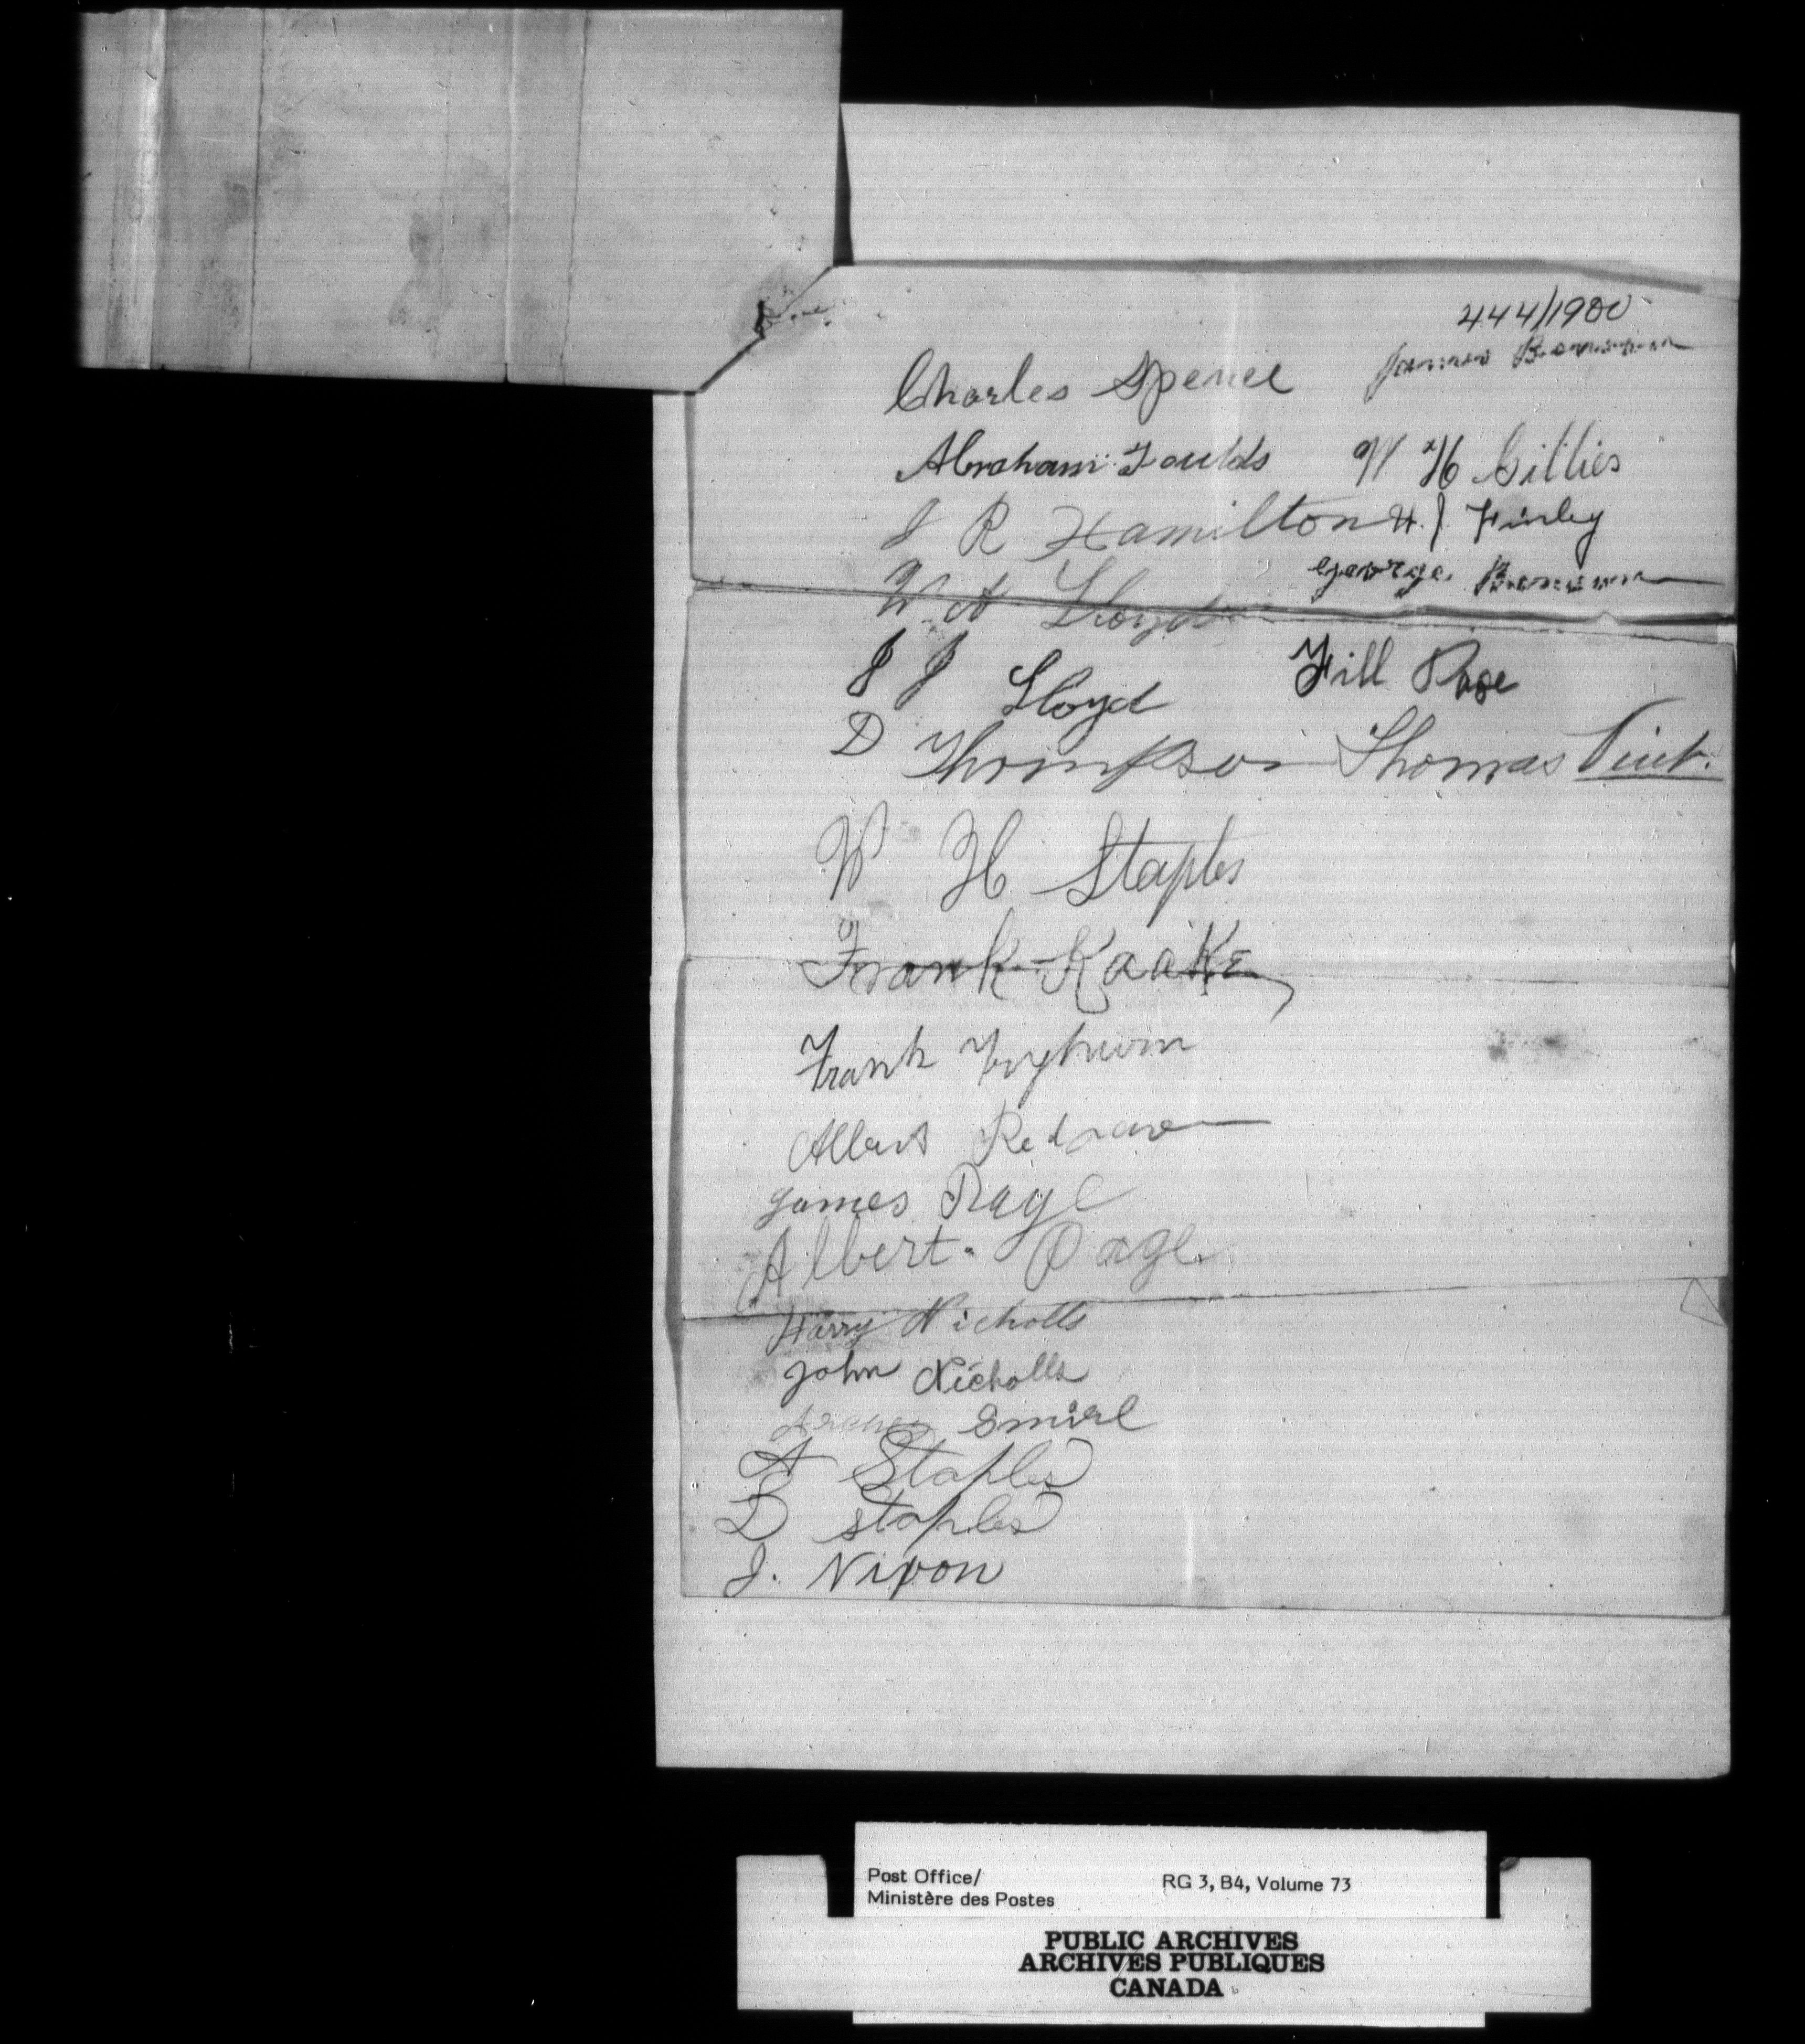 444/1900
Charles Spence James
Abraham Foulds W H Gillies
J R Hamilton H. J. Finley
W A Lloyd George
J J Lloyd Will Page
D Thompson Thomas
W H Staples
Frank Kaake
Frank
Albert
James Page
Albert. Page
Harry Nicholls
John Nicholls
Smirl
A Staples
D Staples
J. Nixon
Post Office/ RG 3, B4, Volume 73
Ministère des Postes
PUBLIC ARCHIVES
ARCHIVES PUBLIQUES
CANADA